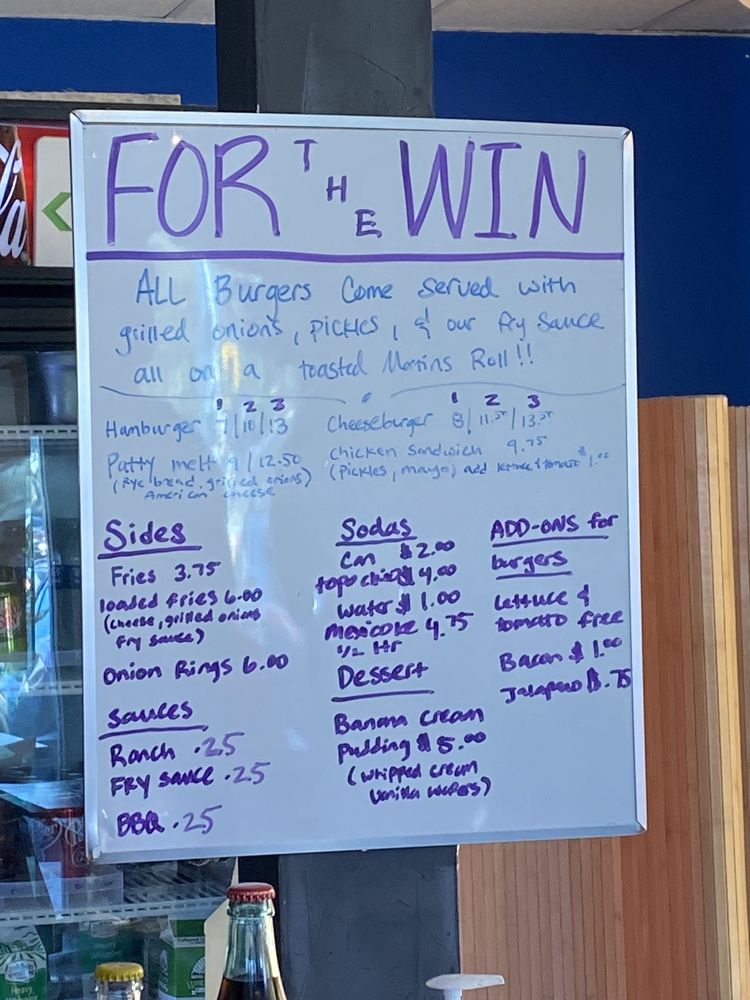 FOR THE WIN
ALL Burgers Come served with
grilled onions, pickles, & our fry sauce
all on a toasted Martins Roll!!
1 2 3
Hamburger 7/10/13
Patty melt 9/12.50
(Rye bread, grilled onions)
American cheese
1 2 3
Cheeseburger 8/11.50/13.50
Chicken Sandwich 9.75
(Pickles, mayo) add lettuce & tomato $1.00
Sides
Fries 3.75
loaded fries 6.00
(cheese, grilled onions
fry sauce)
Onion Rings 6.00
Sauces
Ranch .25
FRY sauce .25
BBQ .25
Sodas
Can $2.00
topo chico $4.00
water $1.00
mexicoke 4.75
1/2 ltr
Dessert
Banana cream
Pudding $5.00
(whipped cream
vanilla wafers)
ADD-ONS for
burgers
Lettuce &
tomato free
Bacon $1.00
Jalapeno $.75
la
Heavy